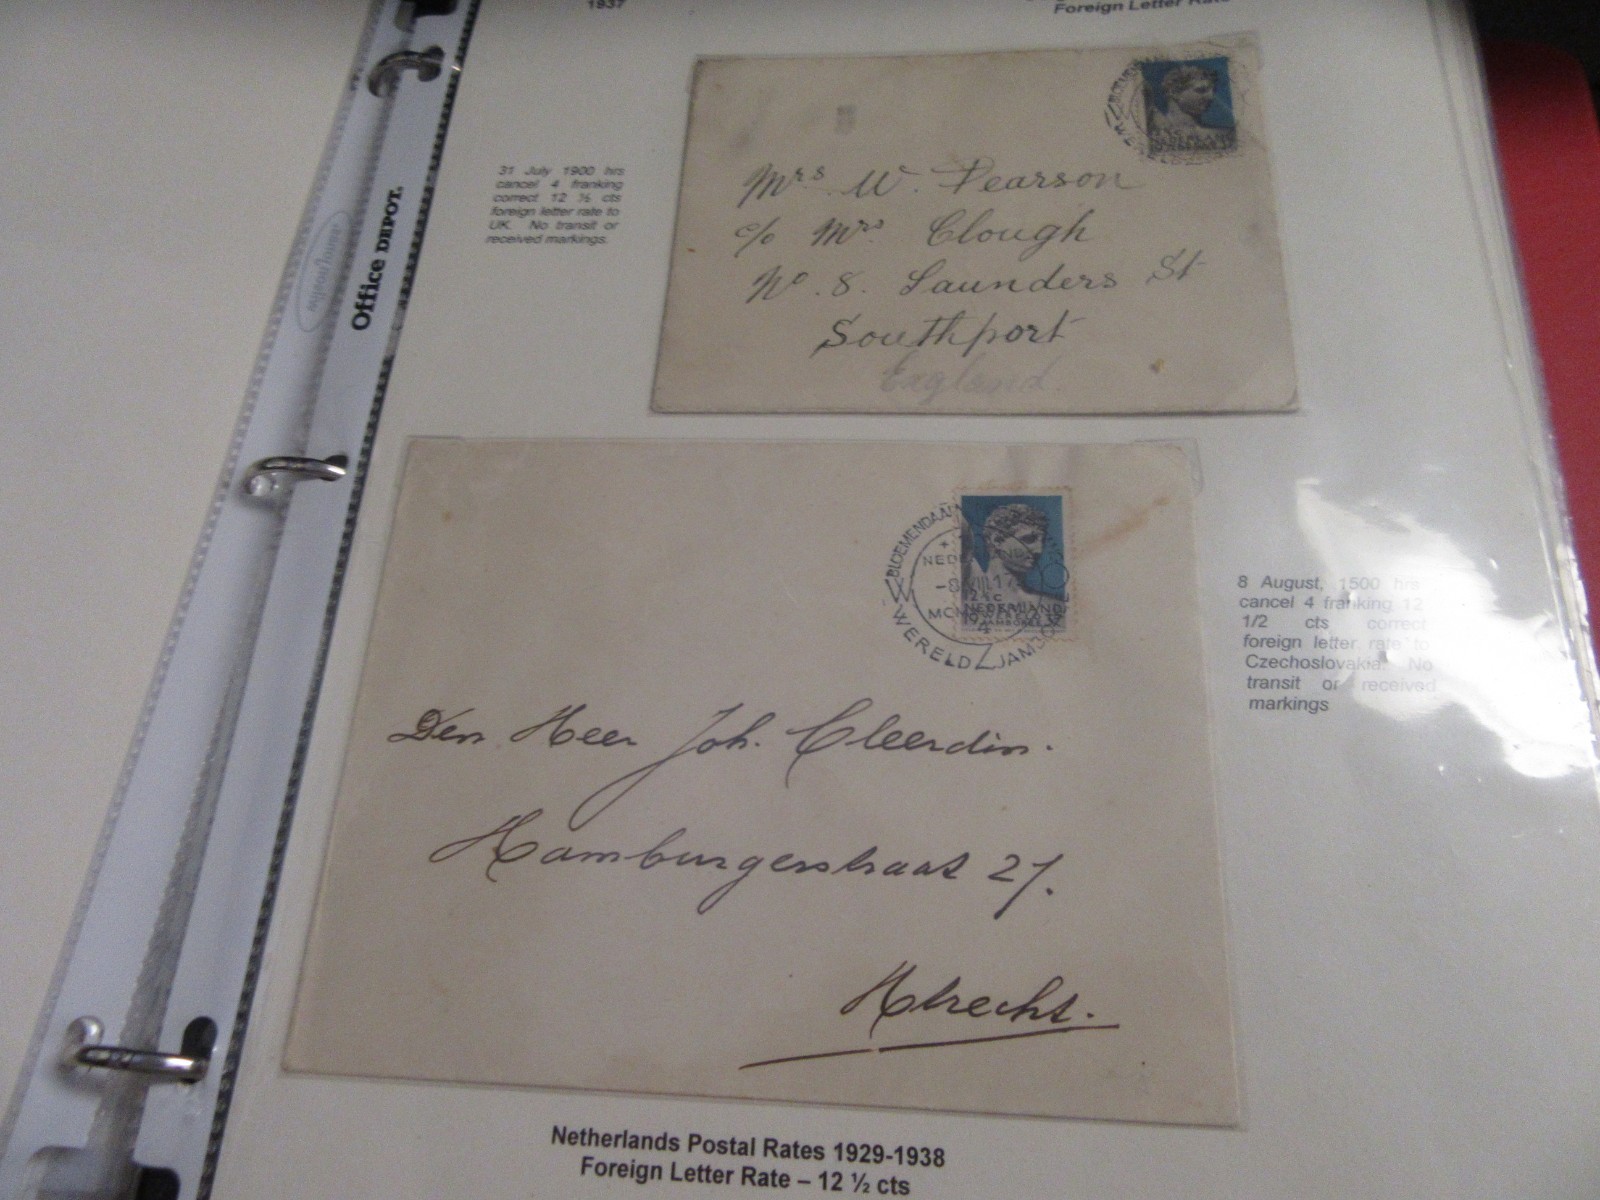 1937
Foreign Letter Rate
Office DEPOT.
31 July 1900 hrs
cancel 4 franking
correct 12 ½ cts
foreign letter rate to
UK. No transit or
received markings.
Mrs. W. Pearson
c/o Mrs. Clough
No. 8. Saunders St
Southport
England.
BLOEMENDAAL
NEDERLAND
12½ c
NEDERLAND
JAMBOREE 37
WERELD JAMBO
4
Den Heer Joh. Cleerdin.
Hamburgerstraat 27.
Utrecht.
8 August, 1500 hrs
cancel 4 franking 12
1/2 cts correct
foreign letter rate to
Czechoslovakia. No
transit or received
markings
Netherlands Postal Rates 1929-1938
Foreign Letter Rate – 12 ½ cts